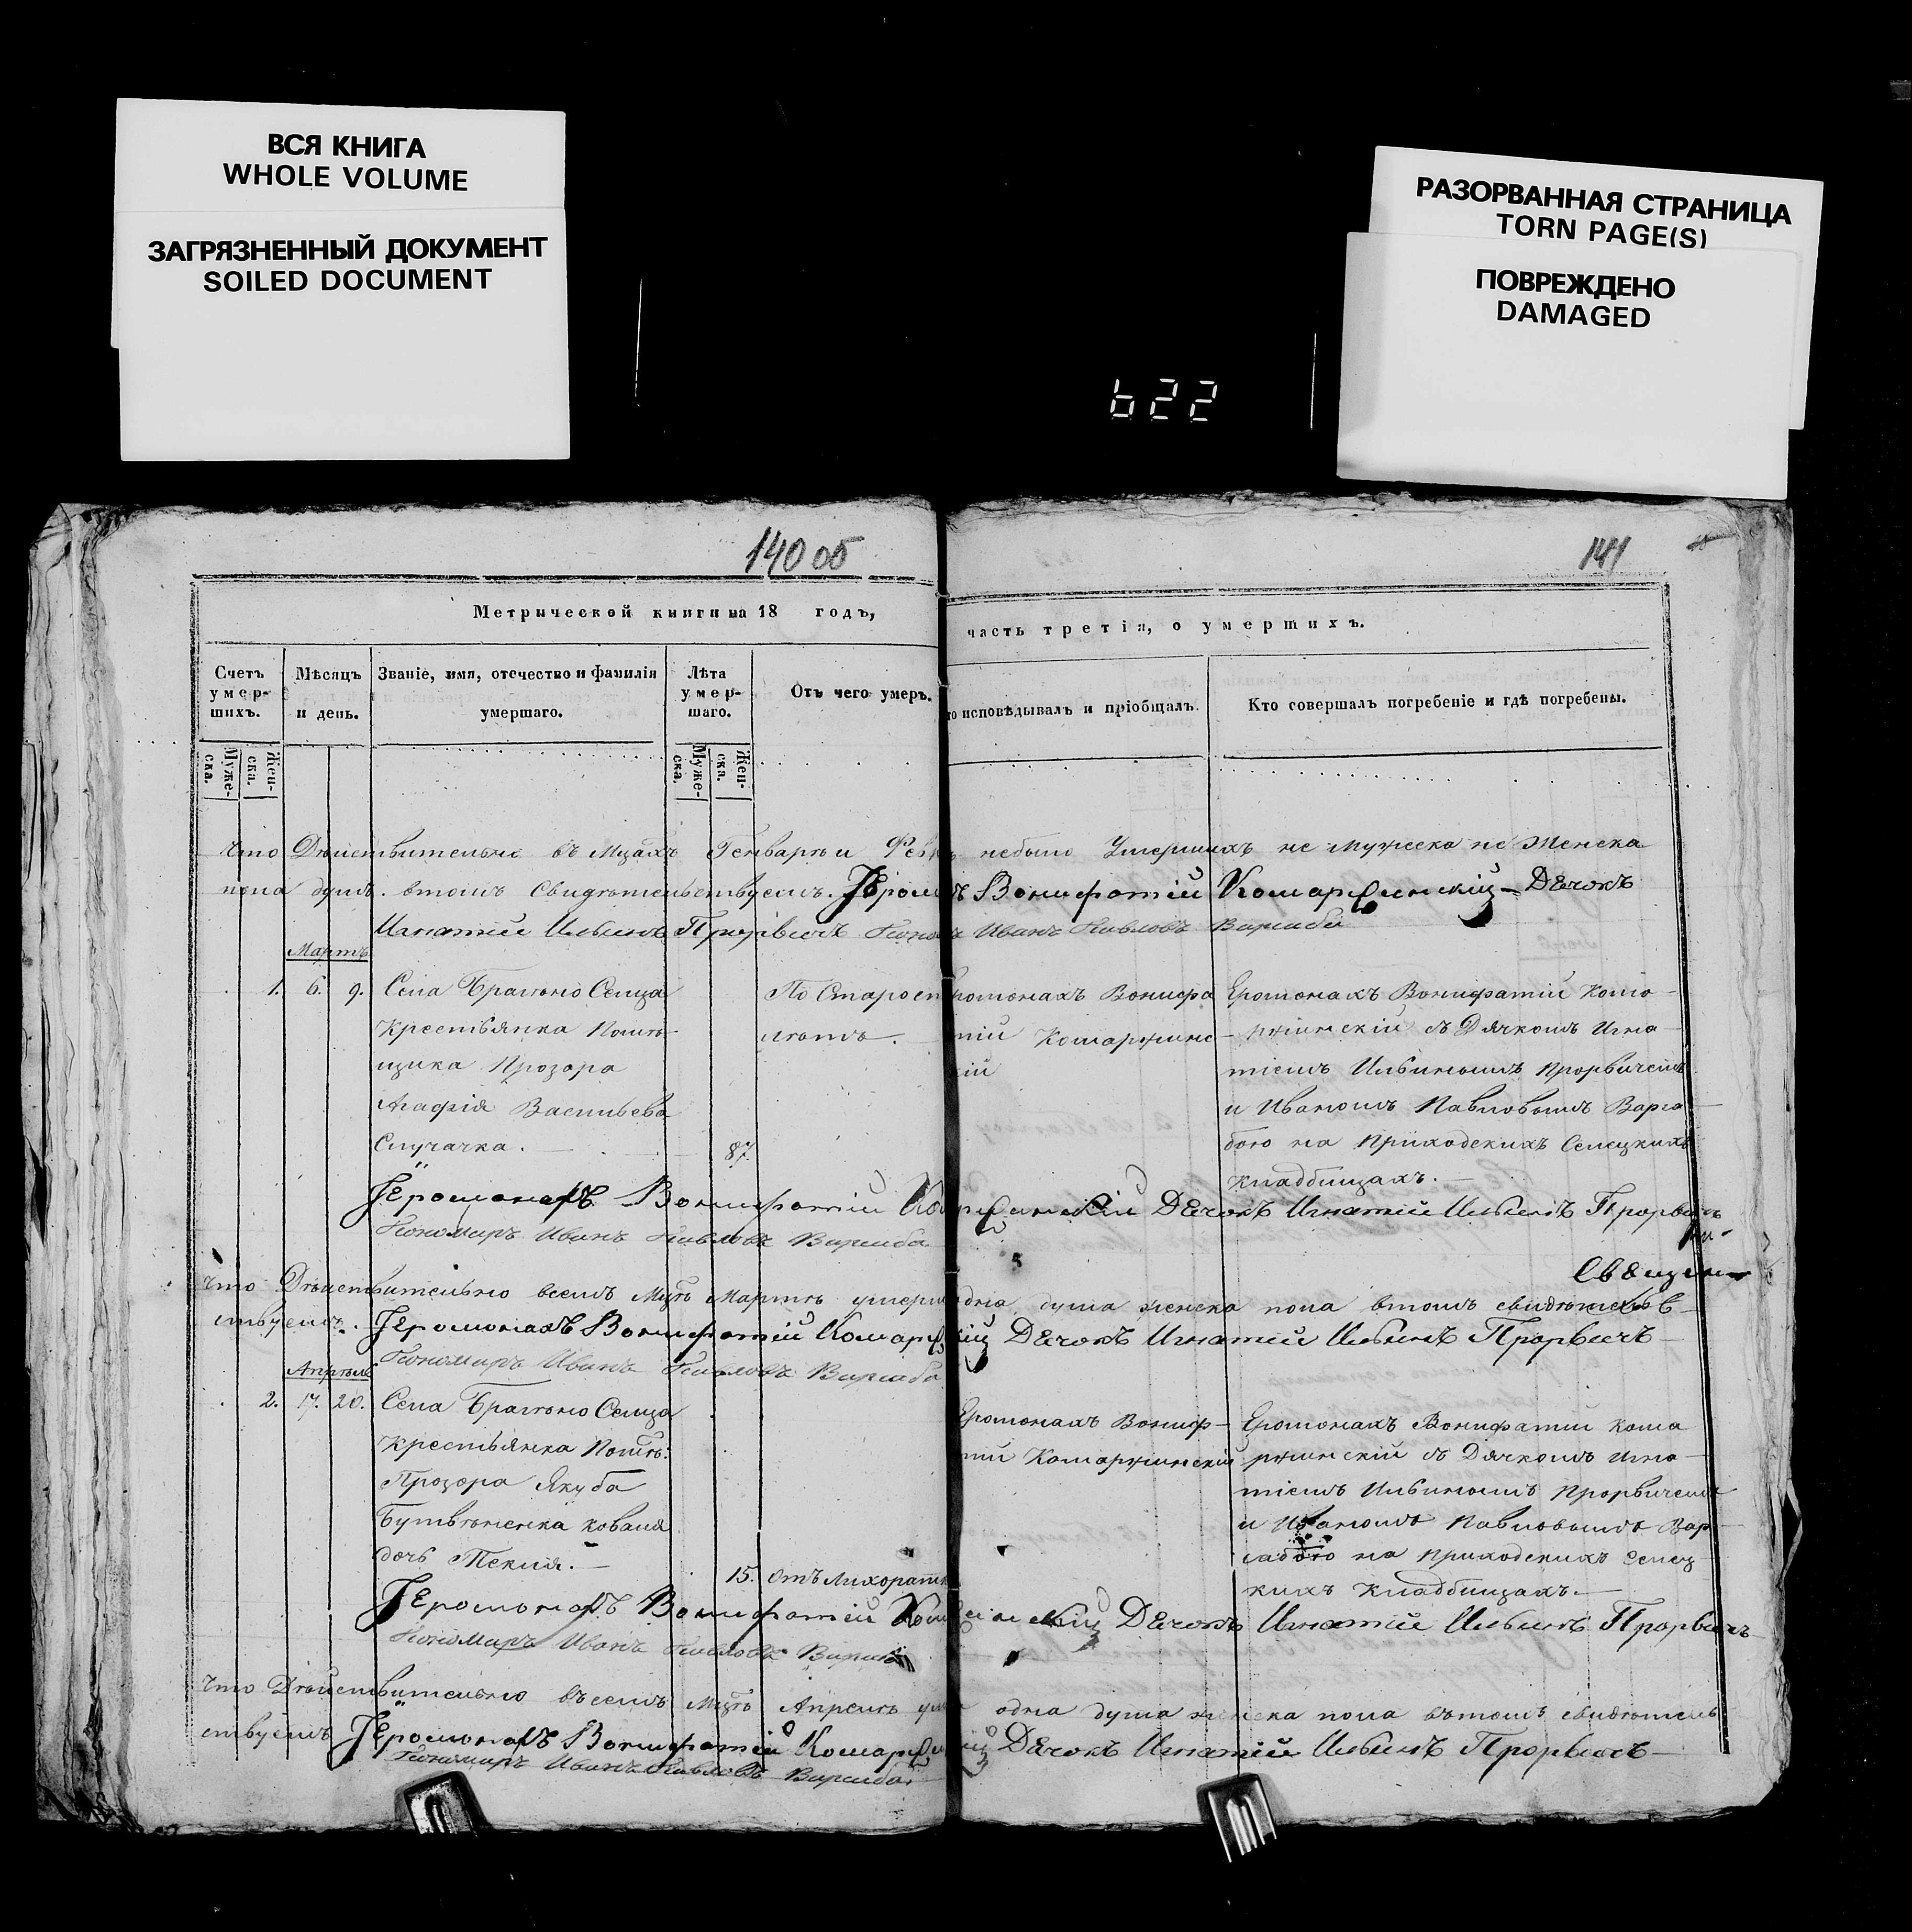 ВСЯ КНИГА
WHOLE VOLUME
ЗАГРЯЗНЕННЫЙ ДОКУМЕНТ
SOILED DOCUMENT
РАЗОРВАННАЯ СТРАНИЦА
TORN PAGE(S)
ПОВРЕЖДЕНО
DAMAGED
622
140 об
141
Метрической книги на 18 годъ,
часть третія, о умершихъ.
Счетъ умер-шихъ.
Мѣсяцъ и день.
Званіе, имя, отечество и фамилія умершаго.
Лѣта умер-шаго.
Отъ чего умеръ.
то исповѣдывалъ и пріобщалъ.
Кто совершалъ погребеніе и гдѣ погребены.
Муже-ска.
Жен-ска.
Муже-ска.
Жен-ска.
Что Дѣйствительно въ Мцахъ Генварѣ и Фев небыло Умершихъ не мужеска не Женска
пола душъ. втомъ Свидѣтельствуемъ. Іером Вонифатій Комаржинскій Дечокъ
Игнатій Ильинъ Прорвичъ Поном Иванъ Павловъ Варлаба
Мартъ
1. 6. 9. Села Бралъно Селца
Крестьянка Помѣ-
щика Прозора
Агафія Васильева
Случачка.
87
По Старост
лѣтъ.
ромонахъ Вонифа
тій Комаржинс
кій
Еромонахъ Вонифатій Кома-
ржинскій съ Дячкомъ Игна-
тіемъ Ильинымъ Прорвичемъ
и Иваномъ Павловымъ Варла-
бою на Приходскихъ Селецкихъ
Кладбищахъ.
Іеромонахъ Вонифатій Комаржинскій Дечокъ Игнатій Ильинъ Прорвичъ
Пономаръ Иванъ Павловъ Варлаба
Что Дѣйствительно всемъ Мцѣ Мартѣ умерла одна душа женска пола втомъ свидѣтельс-
ствуемъ. Іеромонахъ Вонифатій Комаржинскій Дечокъ Игнатій Ильинъ Прорвичъ
Пономаръ Иванъ Павловъ Варлаба
Апрѣль
2. 17. 20. Села Бралъно Селца
Крестьянка Помѣ:
Прозора Якуба
коваля
дочь Текля.
15. Отъ Лихоратк
Еромонахъ Вониф-
тій Комаржинскій
Еромонахъ Вонифатій Кома
ржинскій съ Дячкомъ Игна-
тіемъ Ильинымъ Прорвичемъ
и Иваномъ Павловымъ Вар-
лабою на Приходскихъ Селец
кихъ Кладбищахъ.
Іеромонахъ Вонифатій Комаржинскій Дечокъ Игнатій Ильинъ Прорвичъ
Пономаръ Иванъ Павловъ Варлаба
Что Дѣйствительно въ семъ Мцѣ Апрелѣ ум одна душа женска пола вътомъ свидѣтель
ствуемъ Іеромонахъ Вонифатій Комаржинскій Дечокъ Игнатій Ильинъ Прорвичъ
Пономаръ Иванъ Павловъ Варлаба